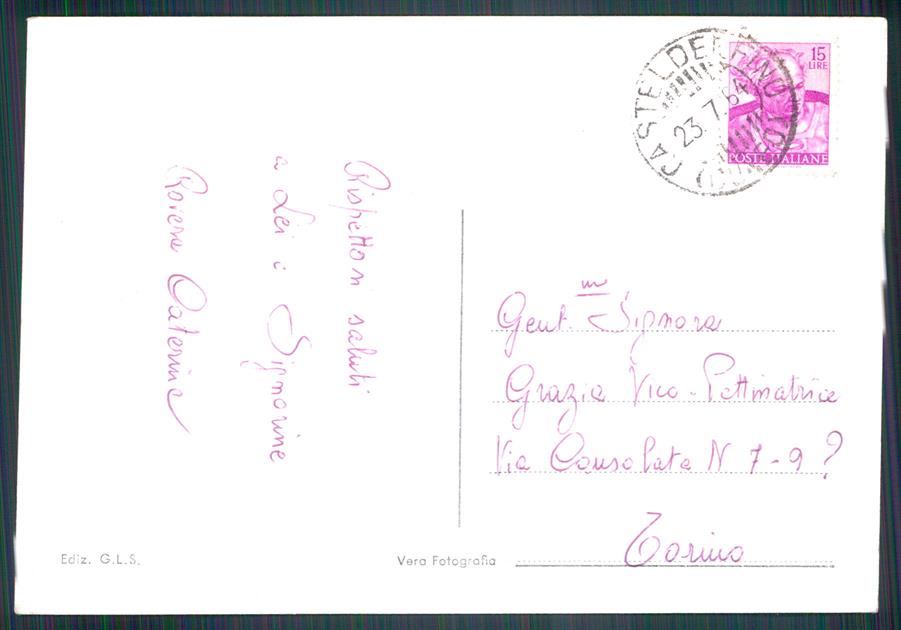 Rispettosi saluti
a Lei e Signorine
Caterina
CASTELDELFINO (CUNEO)
23.7.64
15
LIRE
POSTE ITALIANE
Gent.ma Signora
Grazia Vico - Pettinatrice
Via Consolata N 7-9 ?
Torino
Ediz. G.L.S.
Vera Fotografia